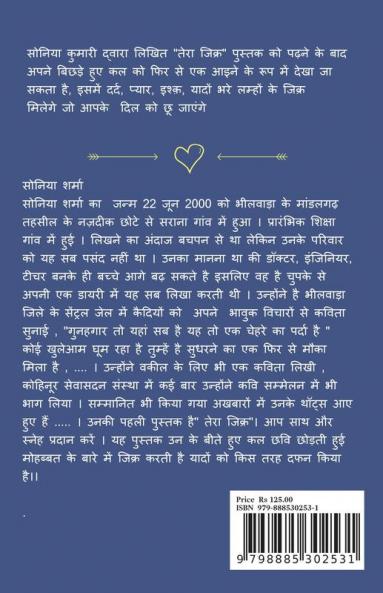 सोनिया कुमारी द्वारा लिखित "तेरा जिक्र" पुस्तक को पढ़ने के बाद
अपने बिछड़े हुए कल को फिर से एक आइने के रूप में देखा जा
सकता है, इसमें दर्द, प्यार, इश्क़, यादों भरे लम्हों के जिक्र
मिलेगे जो आपके दिल को छू जाएंगे
सोनिया शर्मा
सोनिया शर्मा का जन्म 22 जून 2000 को भीलवाड़ा के मांडलगढ़
तहसील के नज़दीक छोटे से सराना गांव में हुआ । प्रारंभिक शिक्षा
गांव में हुई । लिखने का अंदाज बचपन से था लेकिन उनके परिवार
को यह सब पसंद नहीं था । उनका मानना था की डॉक्टर, इंजिनियर,
टीचर बनके ही बच्चे आगे बढ़ सकते है इसलिए वह है चुपके से
अपनी एक डायरी में यह सब लिखा करती थी । उन्होंने है भीलवाड़ा
जिले के सेंट्रल जेल में कैदियों को अपने भावुक विचारों से कविता
सुनाई , "गुनहगार तो यहां सब है यह तो एक चेहरे का पर्दा है "
कोई खुलेआम घूम रहा है तुम्हे है सुधरने का एक फिर से मौका
मिला है , .... । उन्होंने वकील के लिए भी एक कविता लिखी ,
कोहिनूर सेवासदन संस्था में कई बार उन्होंने कवि सम्मेलन में भी
भाग लिया । सम्मानित भी किया गया अखबारों में उनके थॉट्स आए
हुए हैं ..... । उनकी पहली पुस्तक है" तेरा जिक्र"। आप साथ और
स्नेह प्रदान करें । यह पुस्तक उन के बीते हुए कल छवि छोड़ती हुई
मोहब्बत के बारे में जिक्र करती है यादों को किस तरह दफन किया
है।।
.
Price Rs 125.00
ISBN 979-888530253-1
9 798885 302531